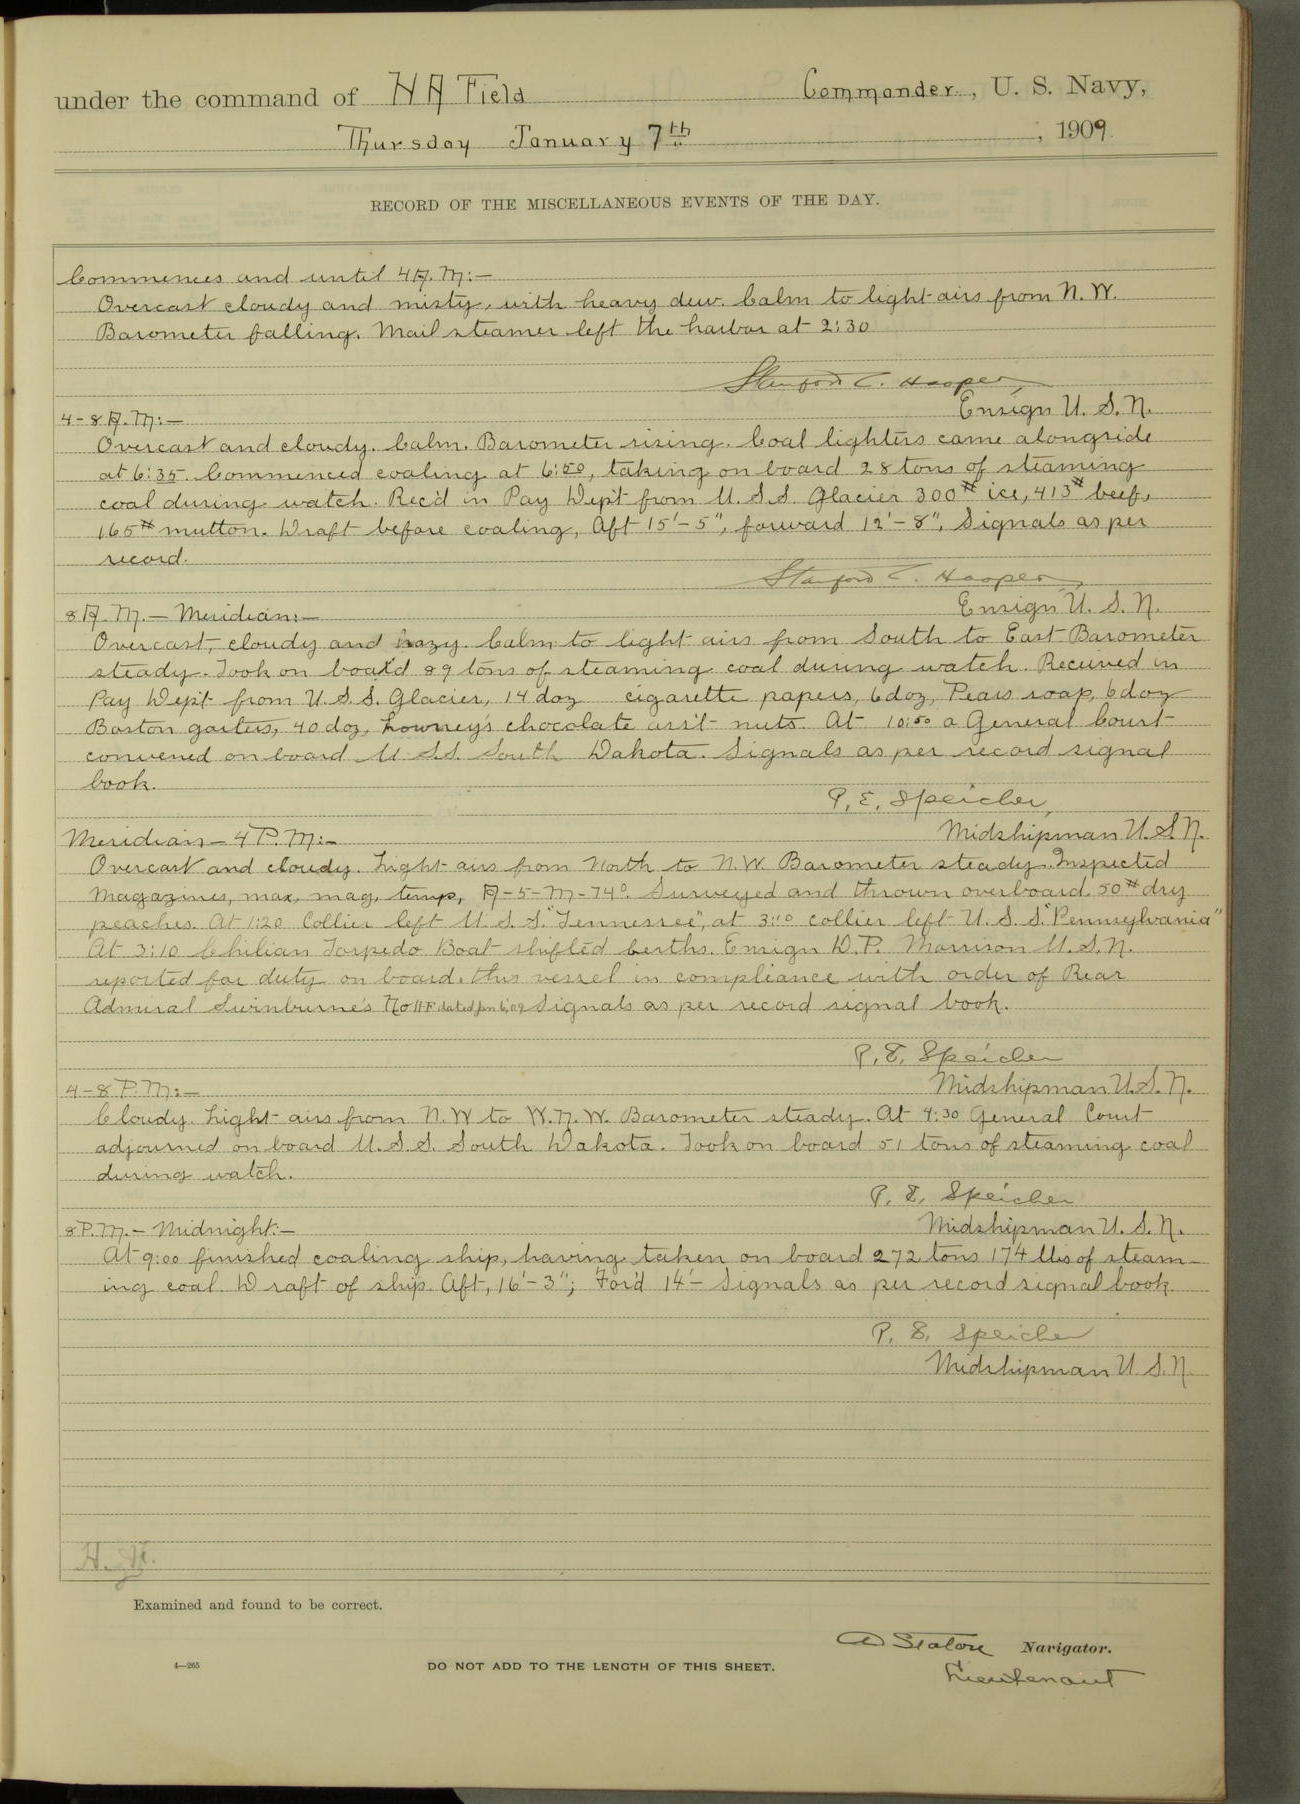 under the command of H A Field Commander, U. S. Navy,
Thursday January 7th, 1909
RECORD OF THE MISCELLANEOUS EVENTS OF THE DAY.
Commences and until 4 A. M:—
Overcast cloudy and misty, with heavy dew. Calm to light airs from N. W.
Barometer falling. Mail steamer left the harbor at 2:30
Stanford C. Hooper,
Ensign U. S. N.
4-8 A. M:—
Overcast and cloudy. Calm. Barometer rising. Coal lighters came alongside
at 6:35. Commenced coaling at 6:50, taking on board 28 tons of steaming
coal during watch. Rec'd in Pay Dep't from U. S. S. Glacier 300# ice, 413# beef,
165# mutton. Draft before coaling, Aft 15'-5", forward 12'-8", Signals as per
record.
Stanford C. Hooper,
Ensign U. S. N.
8 A. M. — Meridian:—
Overcast, cloudy and hazy. Calm to light airs from South to East Barometer
steady. Took on board 89 tons of steaming coal during watch. Received in
Pay Dep't from U. S. S. Glacier, 14 doz cigarette papers, 6 doz, Pears soap, 6 doz
Boston garters, 40 doz, Lowney's chocolate ass't nuts. At 10:50 a General Court
convened on board U. S. S. South Dakota. Signals as per record signal
book.
P. E. Speicher,
Midshipman U. S. N.
Meridian — 4 P. M:—
Overcast and cloudy. Light airs from North to N. W. Barometer steady. Inspected
Magazines, max, mag, temp, A-5-M-74°. Surveyed and thrown overboard 50# dry
peaches. At 1:20 Collier left U. S. S. "Tennessee", at 3:10 collier left U. S. S. "Pennsylvania"
At 3:10 Chilian Torpedo Boat shifted berths. Ensign D. P. Morrison U. S. N.
reported for duty on board this vessel in compliance with order of Rear
Admiral Swinburne's No 11-F dated Jan 6, 09 Signals as per record signal book.
P. E. Speicher
Midshipman U. S. N.
4-8 P. M:—
Cloudy. Light airs from N. W to W. N. W. Barometer steady. At 4:30 General Court
adjourned on board U. S. S. South Dakota. Took on board 51 tons of steaming coal
during watch.
P. E. Speicher
Midshipman U. S. N.
8 P. M. — Midnight:—
At 9:00 finished coaling ship, having taken on board 272 tons 174 lbs of steam-
ing coal. Draft of ship. Aft, 16'-3"; For'd 14'— Signals as per record signal book.
P. E. Speicher
Midshipman U. S. N.
Examined and found to be correct.
Navigator.
4—265 DO NOT ADD TO THE LENGTH OF THIS SHEET.
Lieutenant